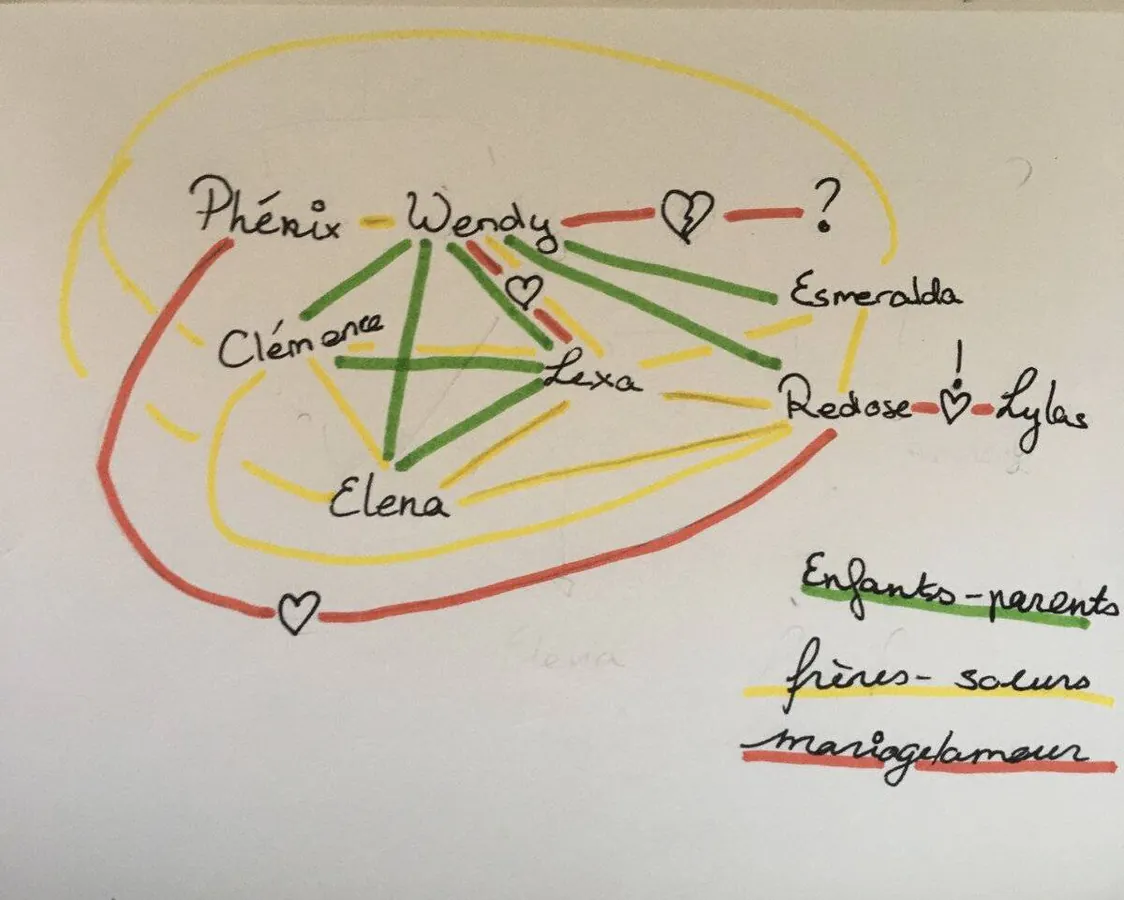 Phénix Wendy ?
Esmeralda
Clémence
!
Lexa
Redose Lylas
Elena
Enfants-parents
frères-soeurs
mariage/amour